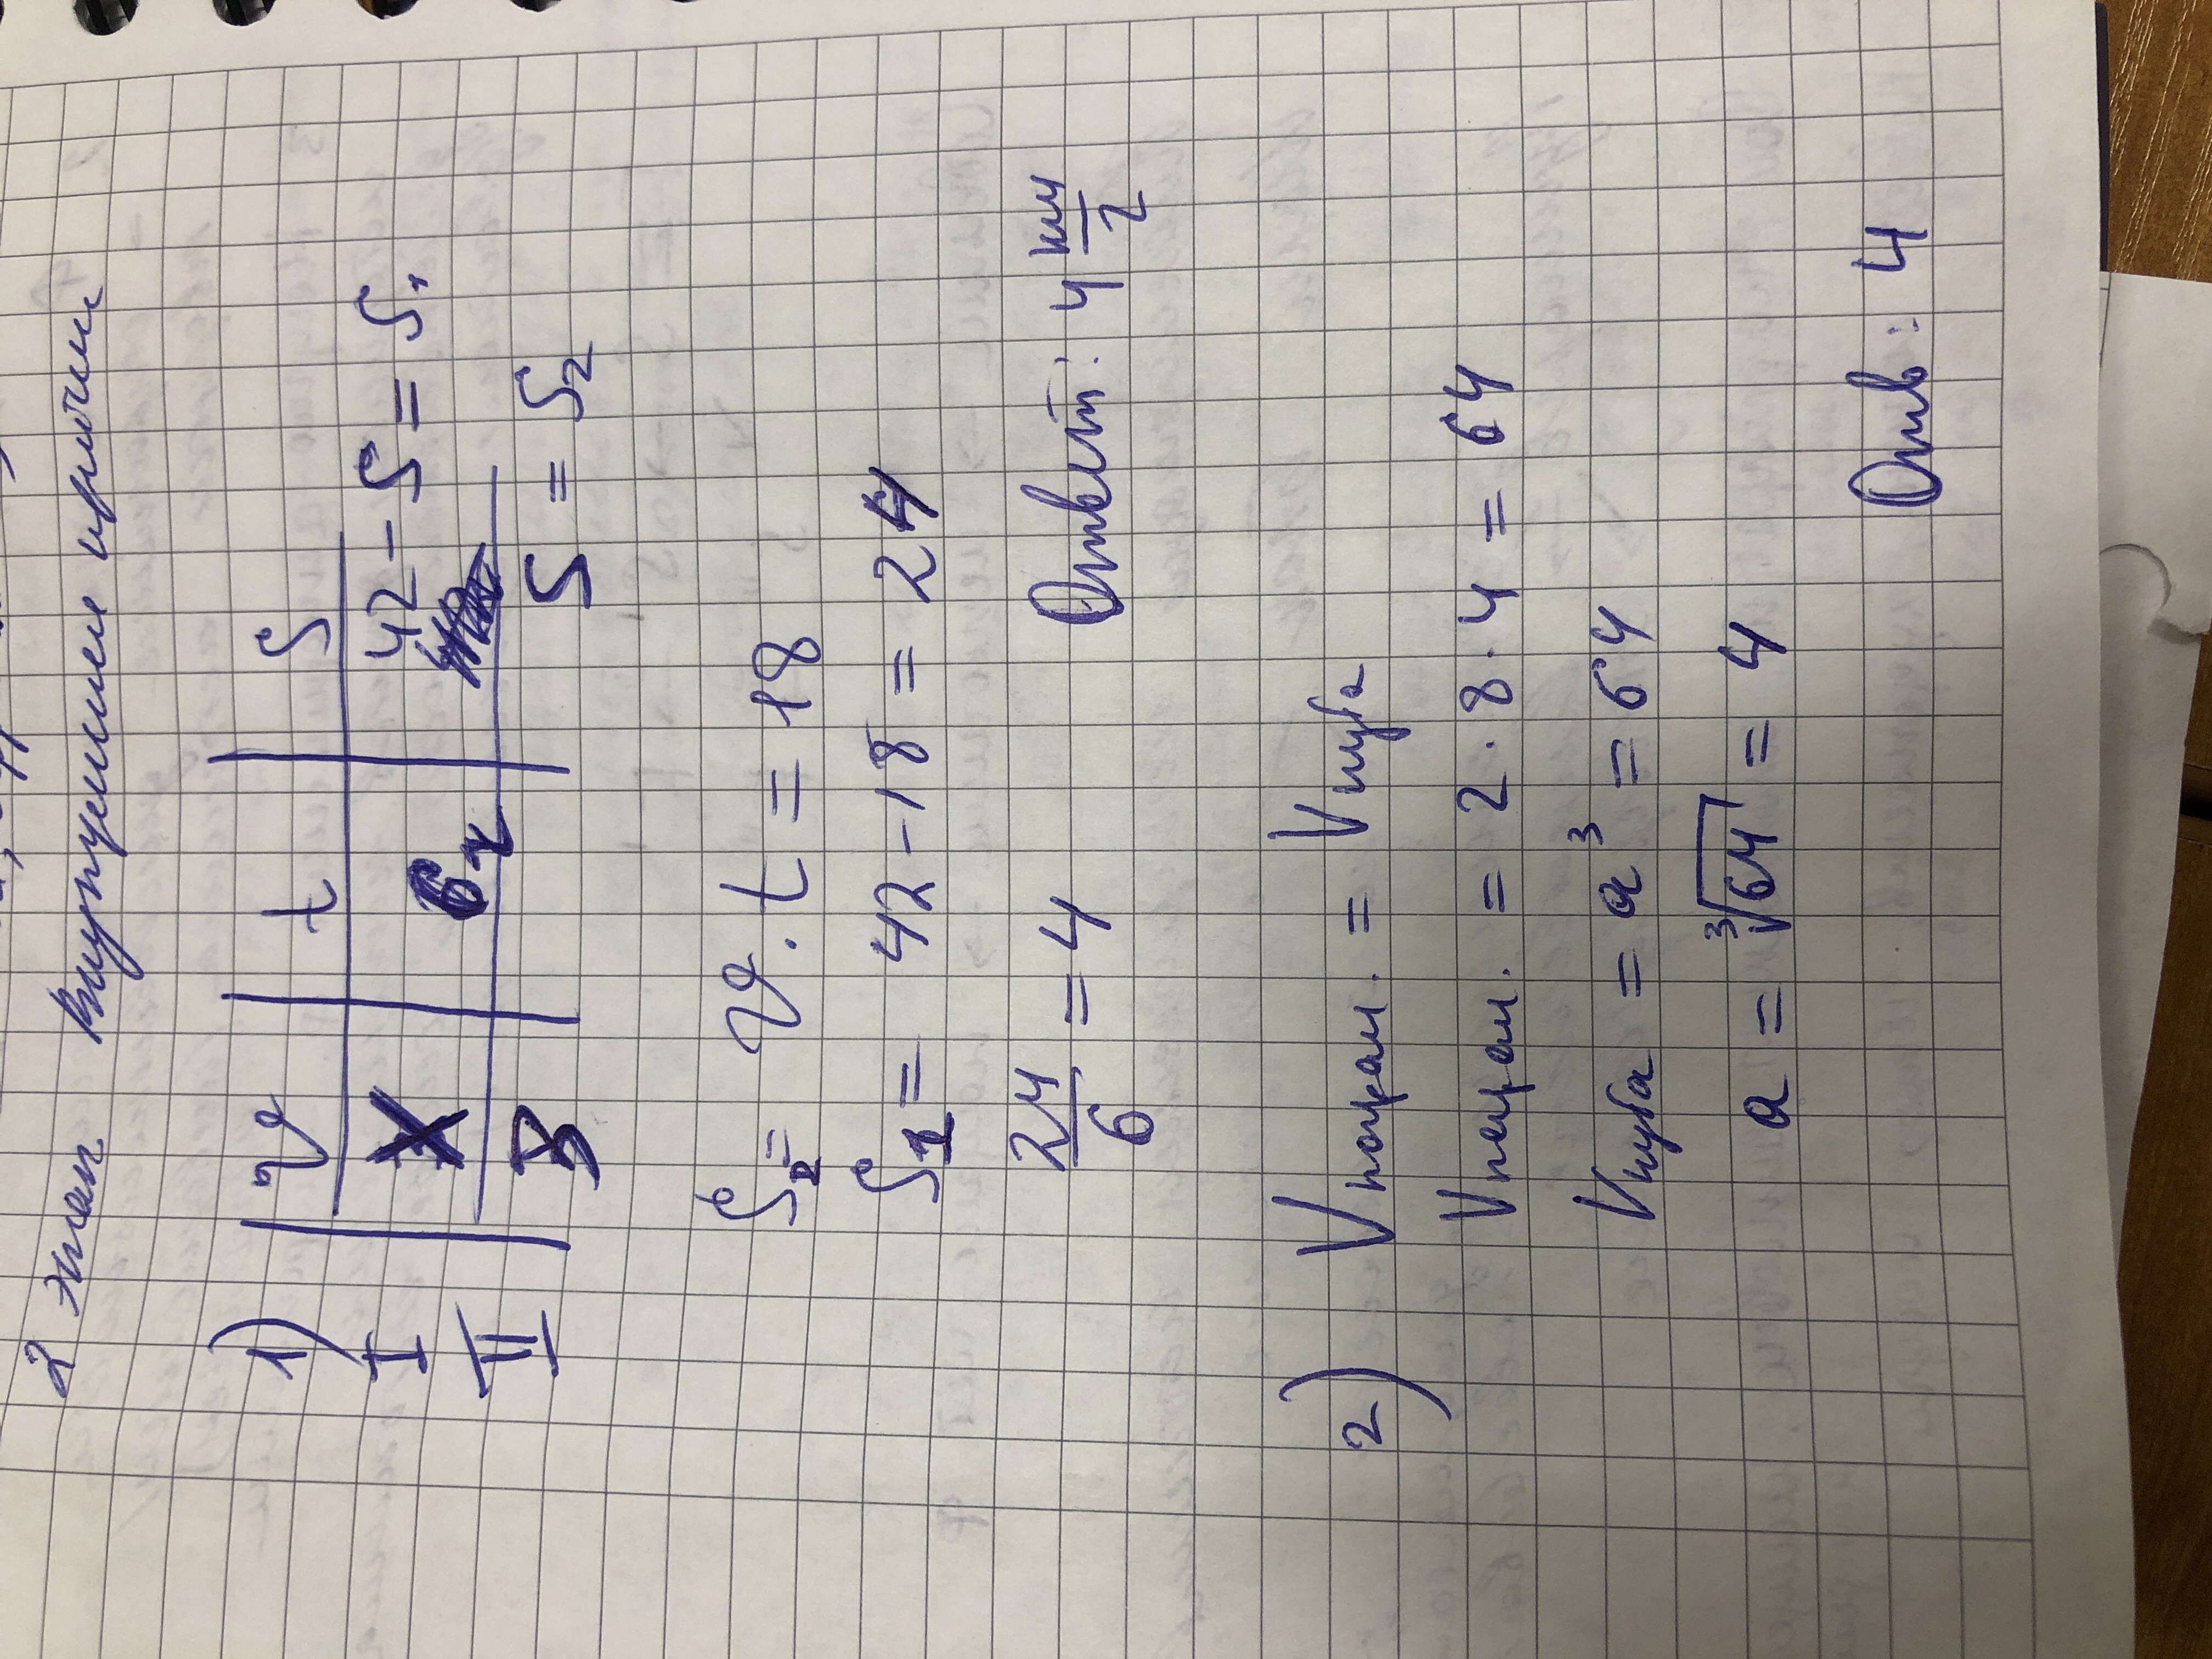 2 этап внутрешии критии
1) v t S
I X 6ч 42 - S = S₁
II 3 S = S₂
S₂ = v · t = 18
S₁ = 42 - 18 = 24
24/6 = 4
Ответ: 4 км/ч
2) Vпарал. = Vкуба
Vпарал. = 2 · 8 · 4 = 64
Vкуба = a³ = 64
a = ³√64 = 4
Отв: 4